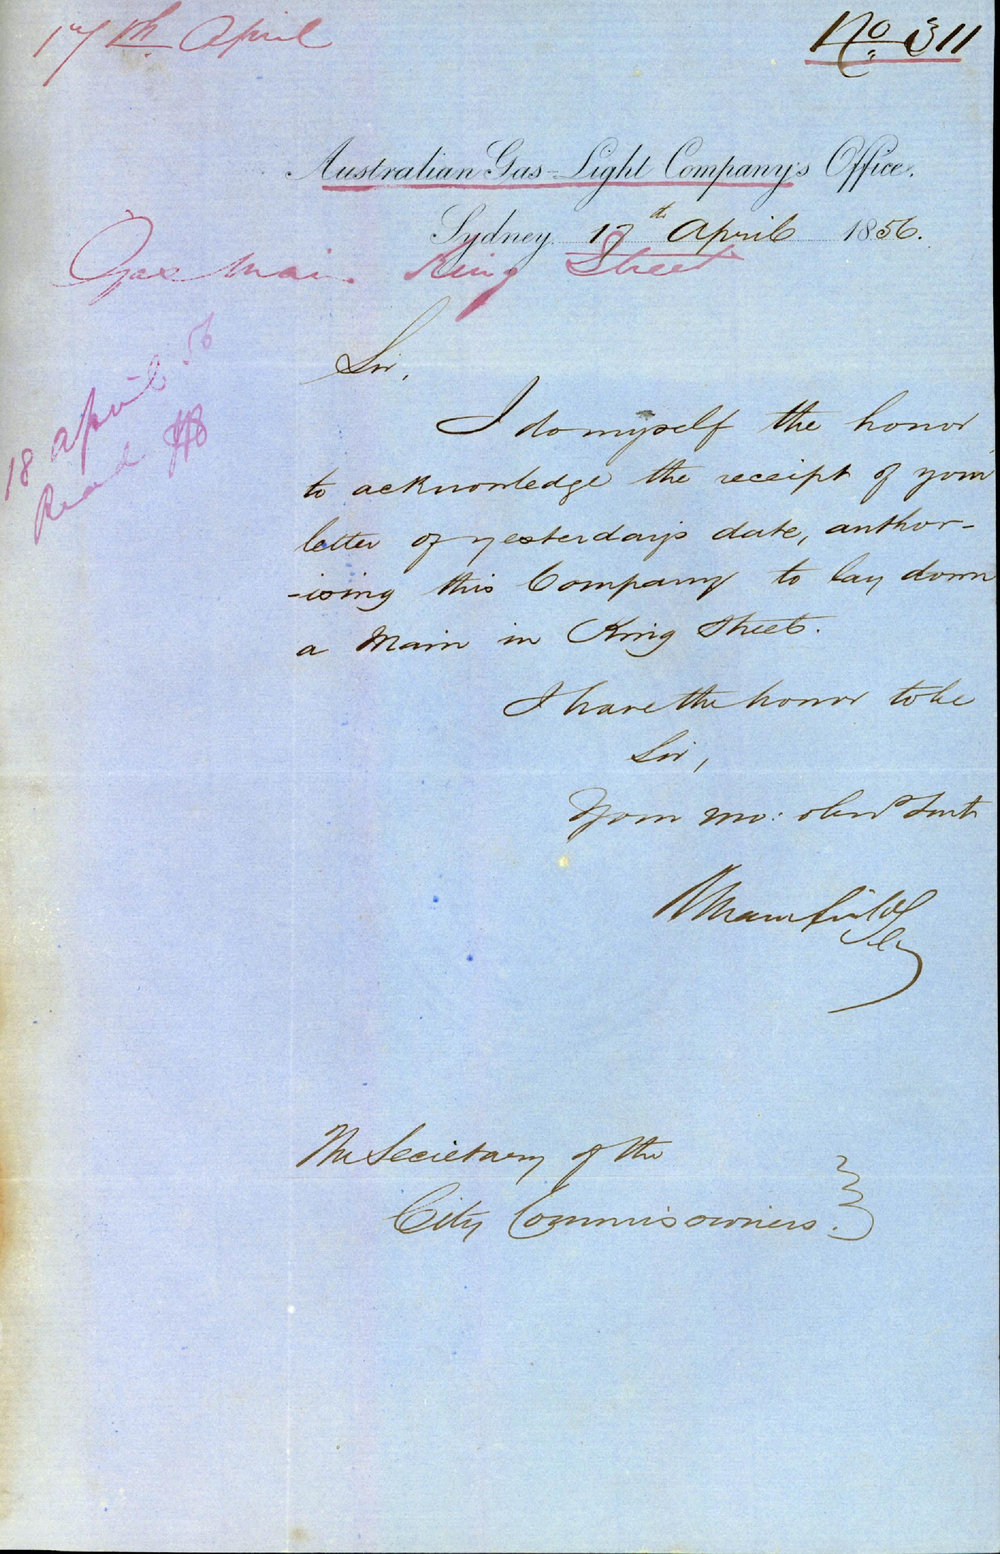 17th April
No. 311
Australian Gas-Light Company's Office.
Sydney 17th April 1856.
Gas Main. King Street
18 April 56
Read
Sir,
I do myself the honor
to acknowledge the receipt of your
letter of yesterday's date, author-
-ising this Company to lay down
a Main in King Street.
I have the honor to be
Sir,
Your mo: obedt Servt
The Secretary of the
City Commissioners.